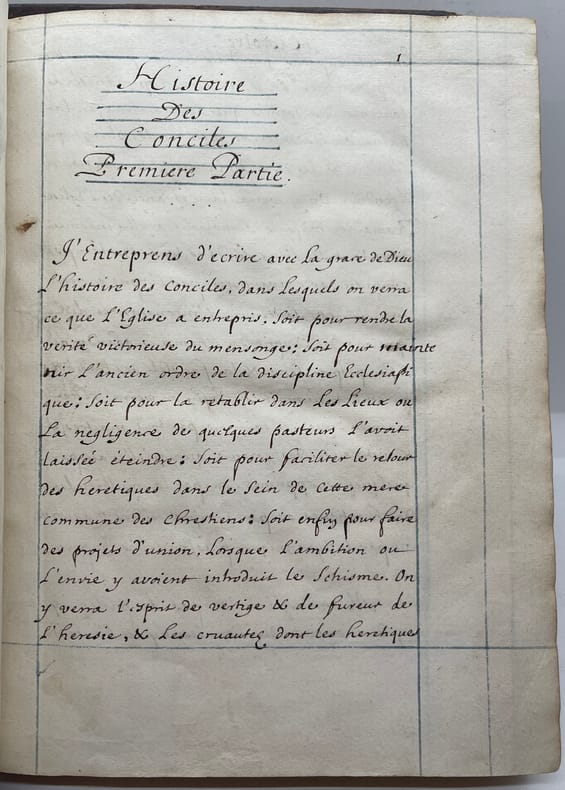 1
Histoire
Des
Conciles
Premiere Partie.
J'Entreprens d'ecrire avec la grace de Dieu
l'histoire des Conciles, dans lesquels on verra
ce que l'Eglise a entrepris: Soit pour rendre la
verité victorieuse du mensonge: Soit pour mainte
nir l'ancien ordre de la discipline Ecclesiasti
que: Soit pour la retablir dans les lieux ou
la negligence de quelques pasteurs l'avoit
laissée éteindre: Soit pour faciliter le retour
des heretiques dans le sein de cette mere
commune des Chrestiens: Soit enfin pour faire
des projets d'union, lorsque l'ambition ou
l'envie y avoient introduit le Schisme. On
y verra l'esprit de vertige & de fureur de
l'heresie, & les cruautez dont les heretiques